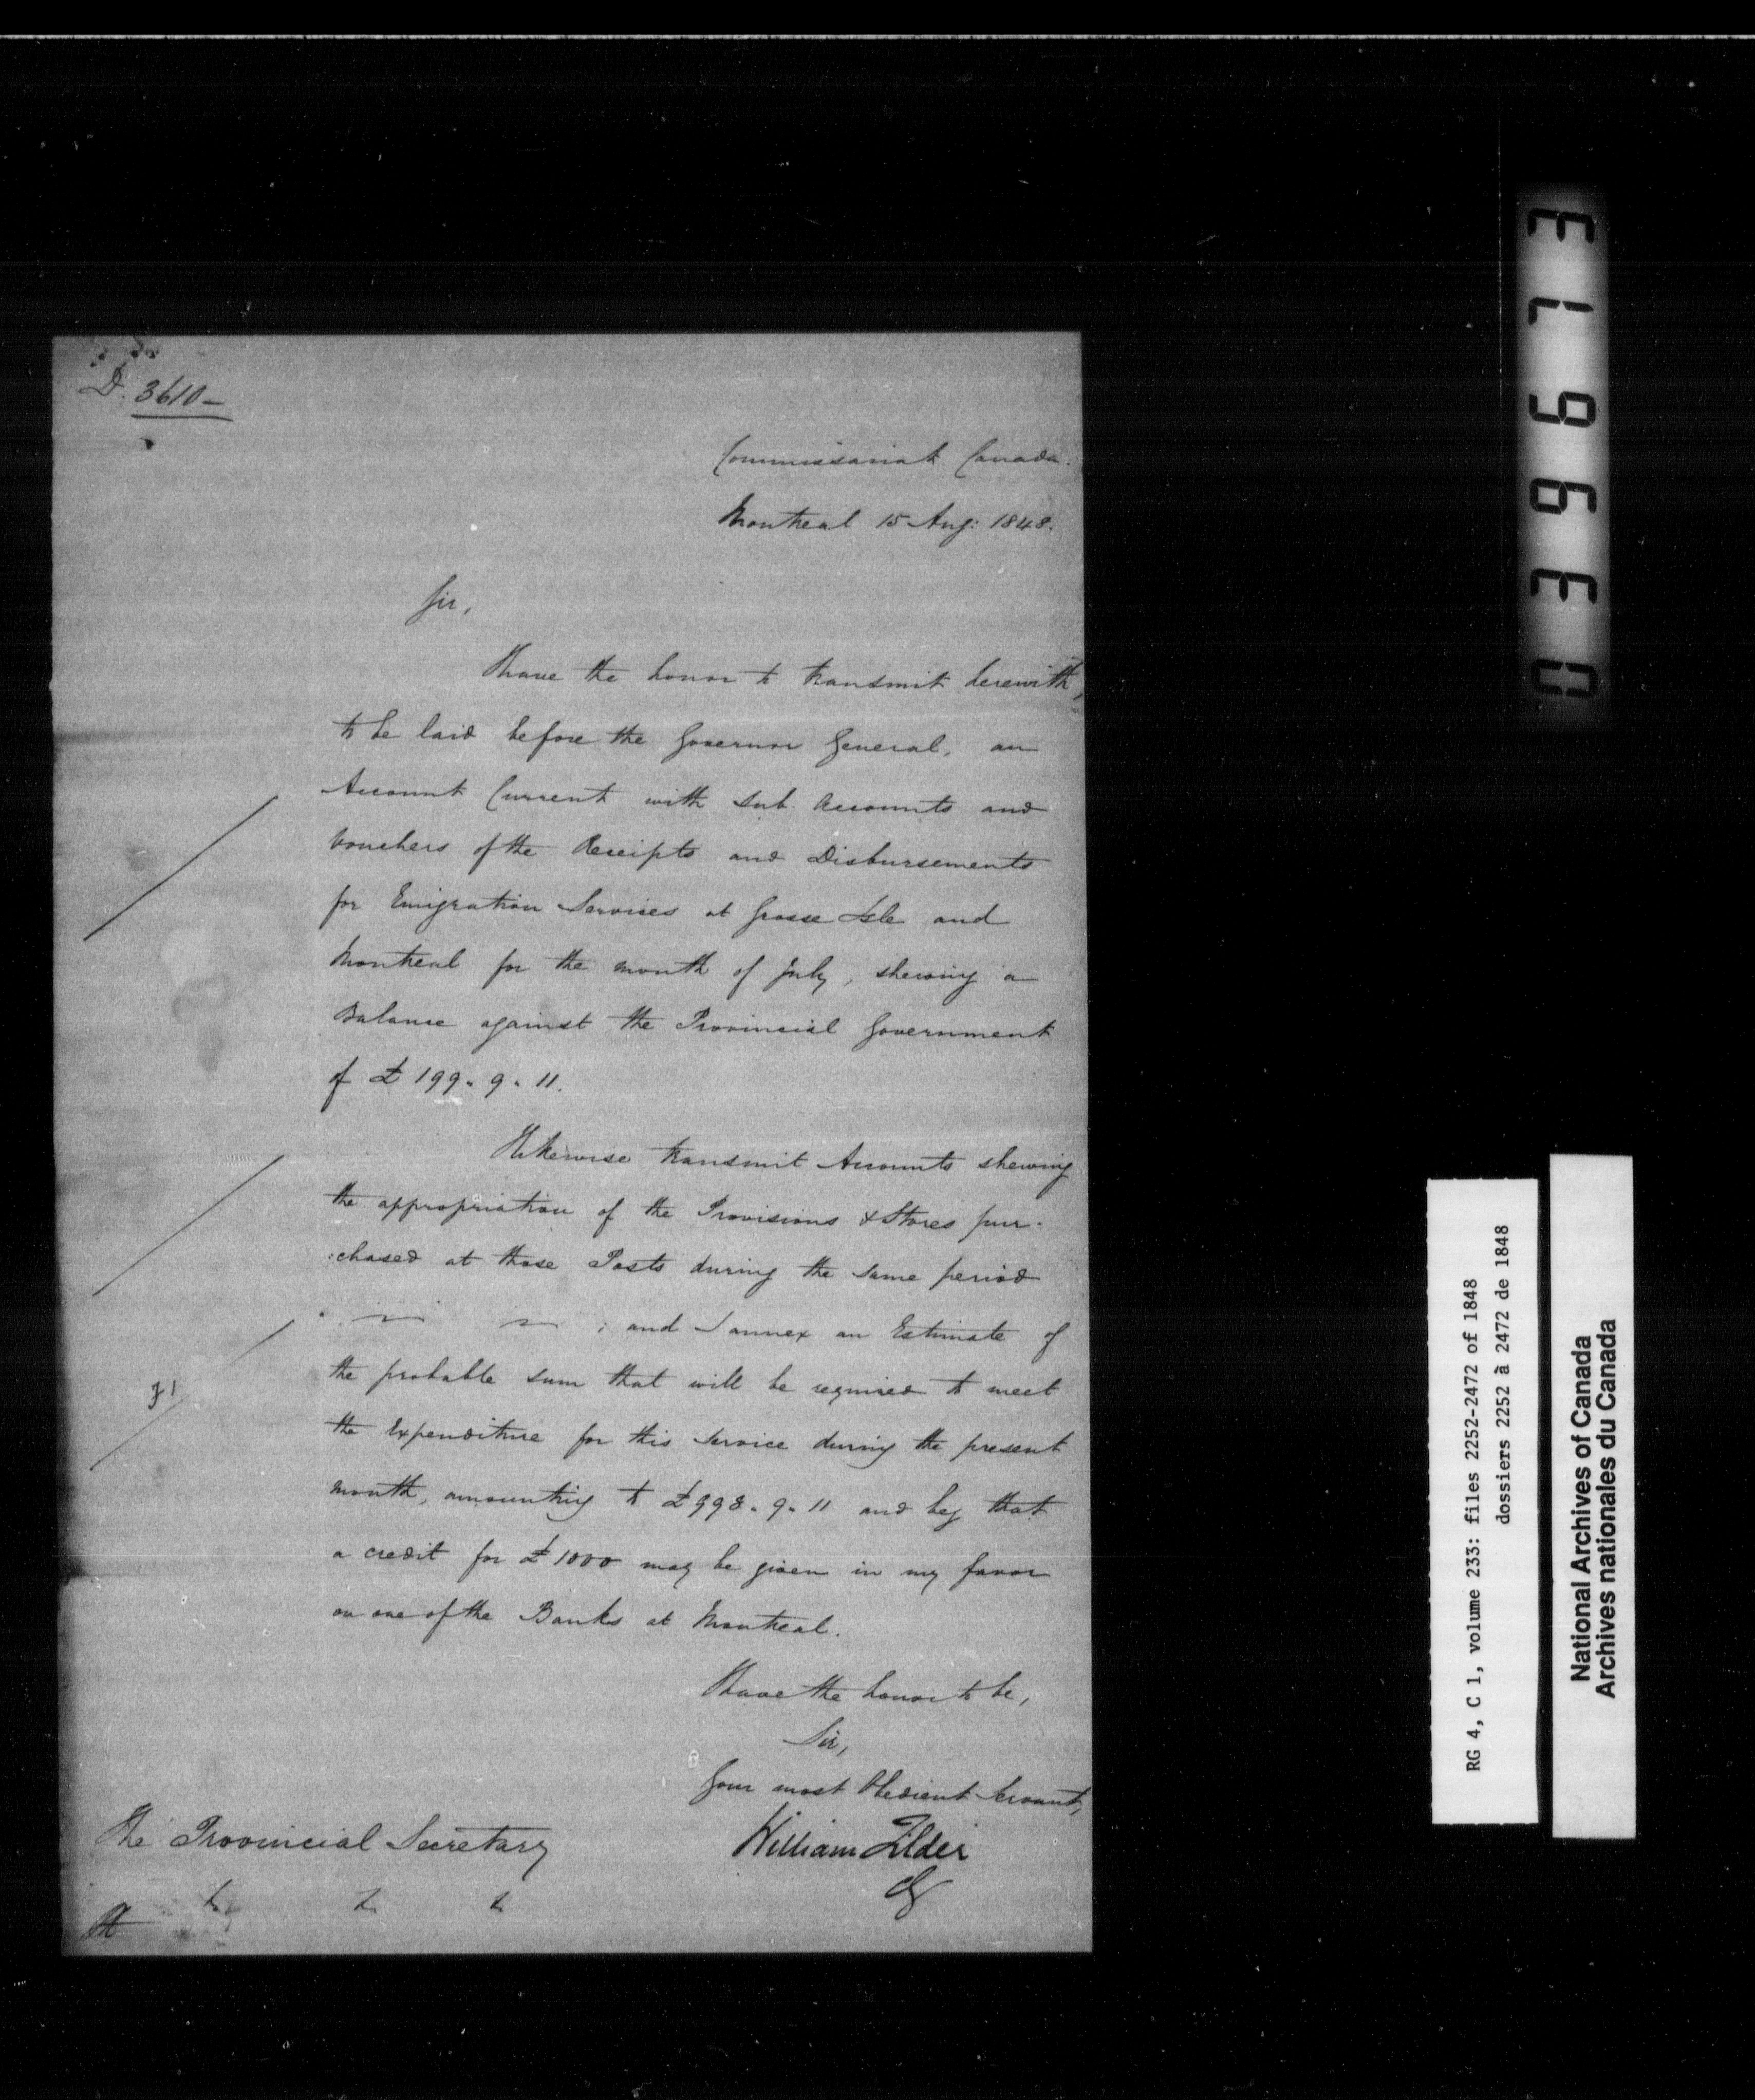 D. 3610-
Commissariat Canada.
Montreal 15 Aug: 1848.
Sir,
I have the honor to transmit herewith,
to be laid before the Governor General, an
Account Current with Sub. Accounts and
Vouchers of the Receipts and Disbursements
for Emigration Services at Grosse Isle and
Montreal for the month of July, shewing a
Balance against the Provincial Government
of £199. 9. 11.
I likewise transmit Accounts shewing
the appropriation of the Provisions & Stores pur-
:chased at those Posts during the same period
; and I annex an Estimate of
the probable sum that will be required to meet
the Expenditure for this Service during the present
month, amounting to £998. 9. 11 and beg that
a credit for £1000 may be given in my favor
on one of the Banks at Montreal.
I have the honor to be,
Sir,
Your most Obedient Servant,
William Filder
CG
The Provincial Secretary
&c &c &c
RG 4, C 1, volume 233: files 2252-2472 of 1848
dossiers 2252 à 2472 de 1848
National Archives of Canada
Archives nationales du Canada